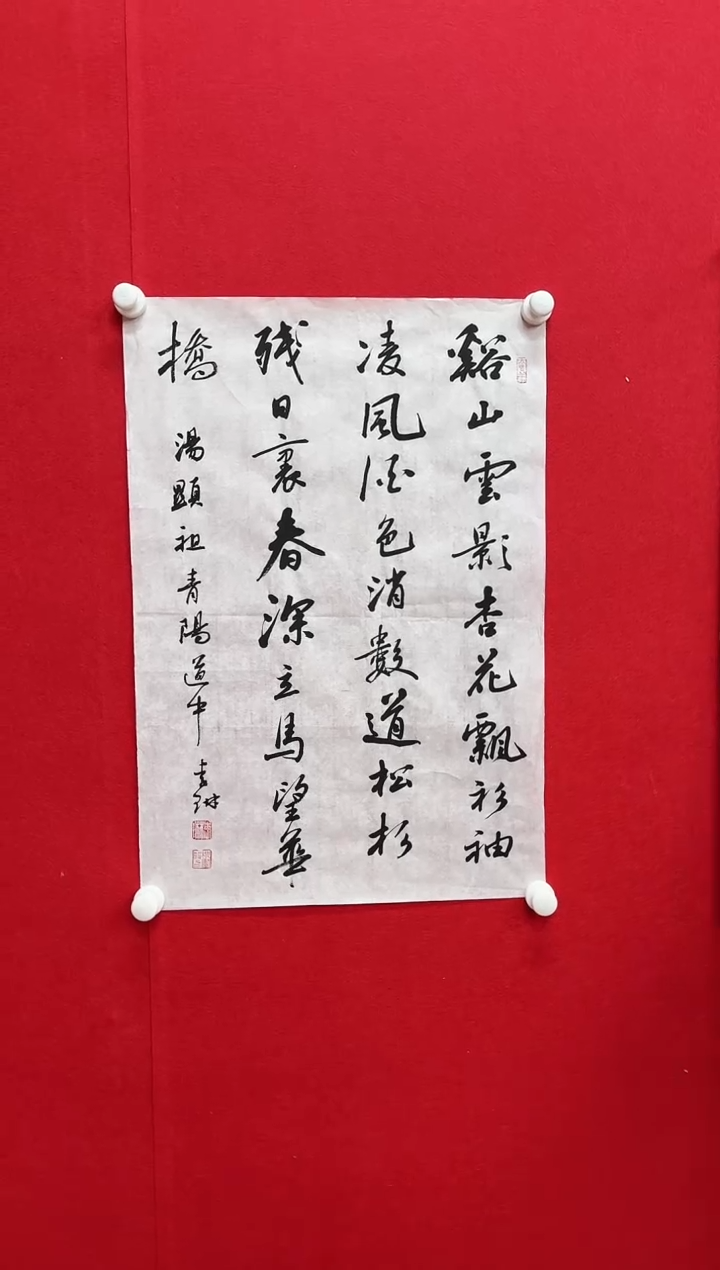 谿山雲影杏花飄衫袖
凌風酒色消數道松杉
残日裏春深立馬望華
橋
湯顯祖青陽道中